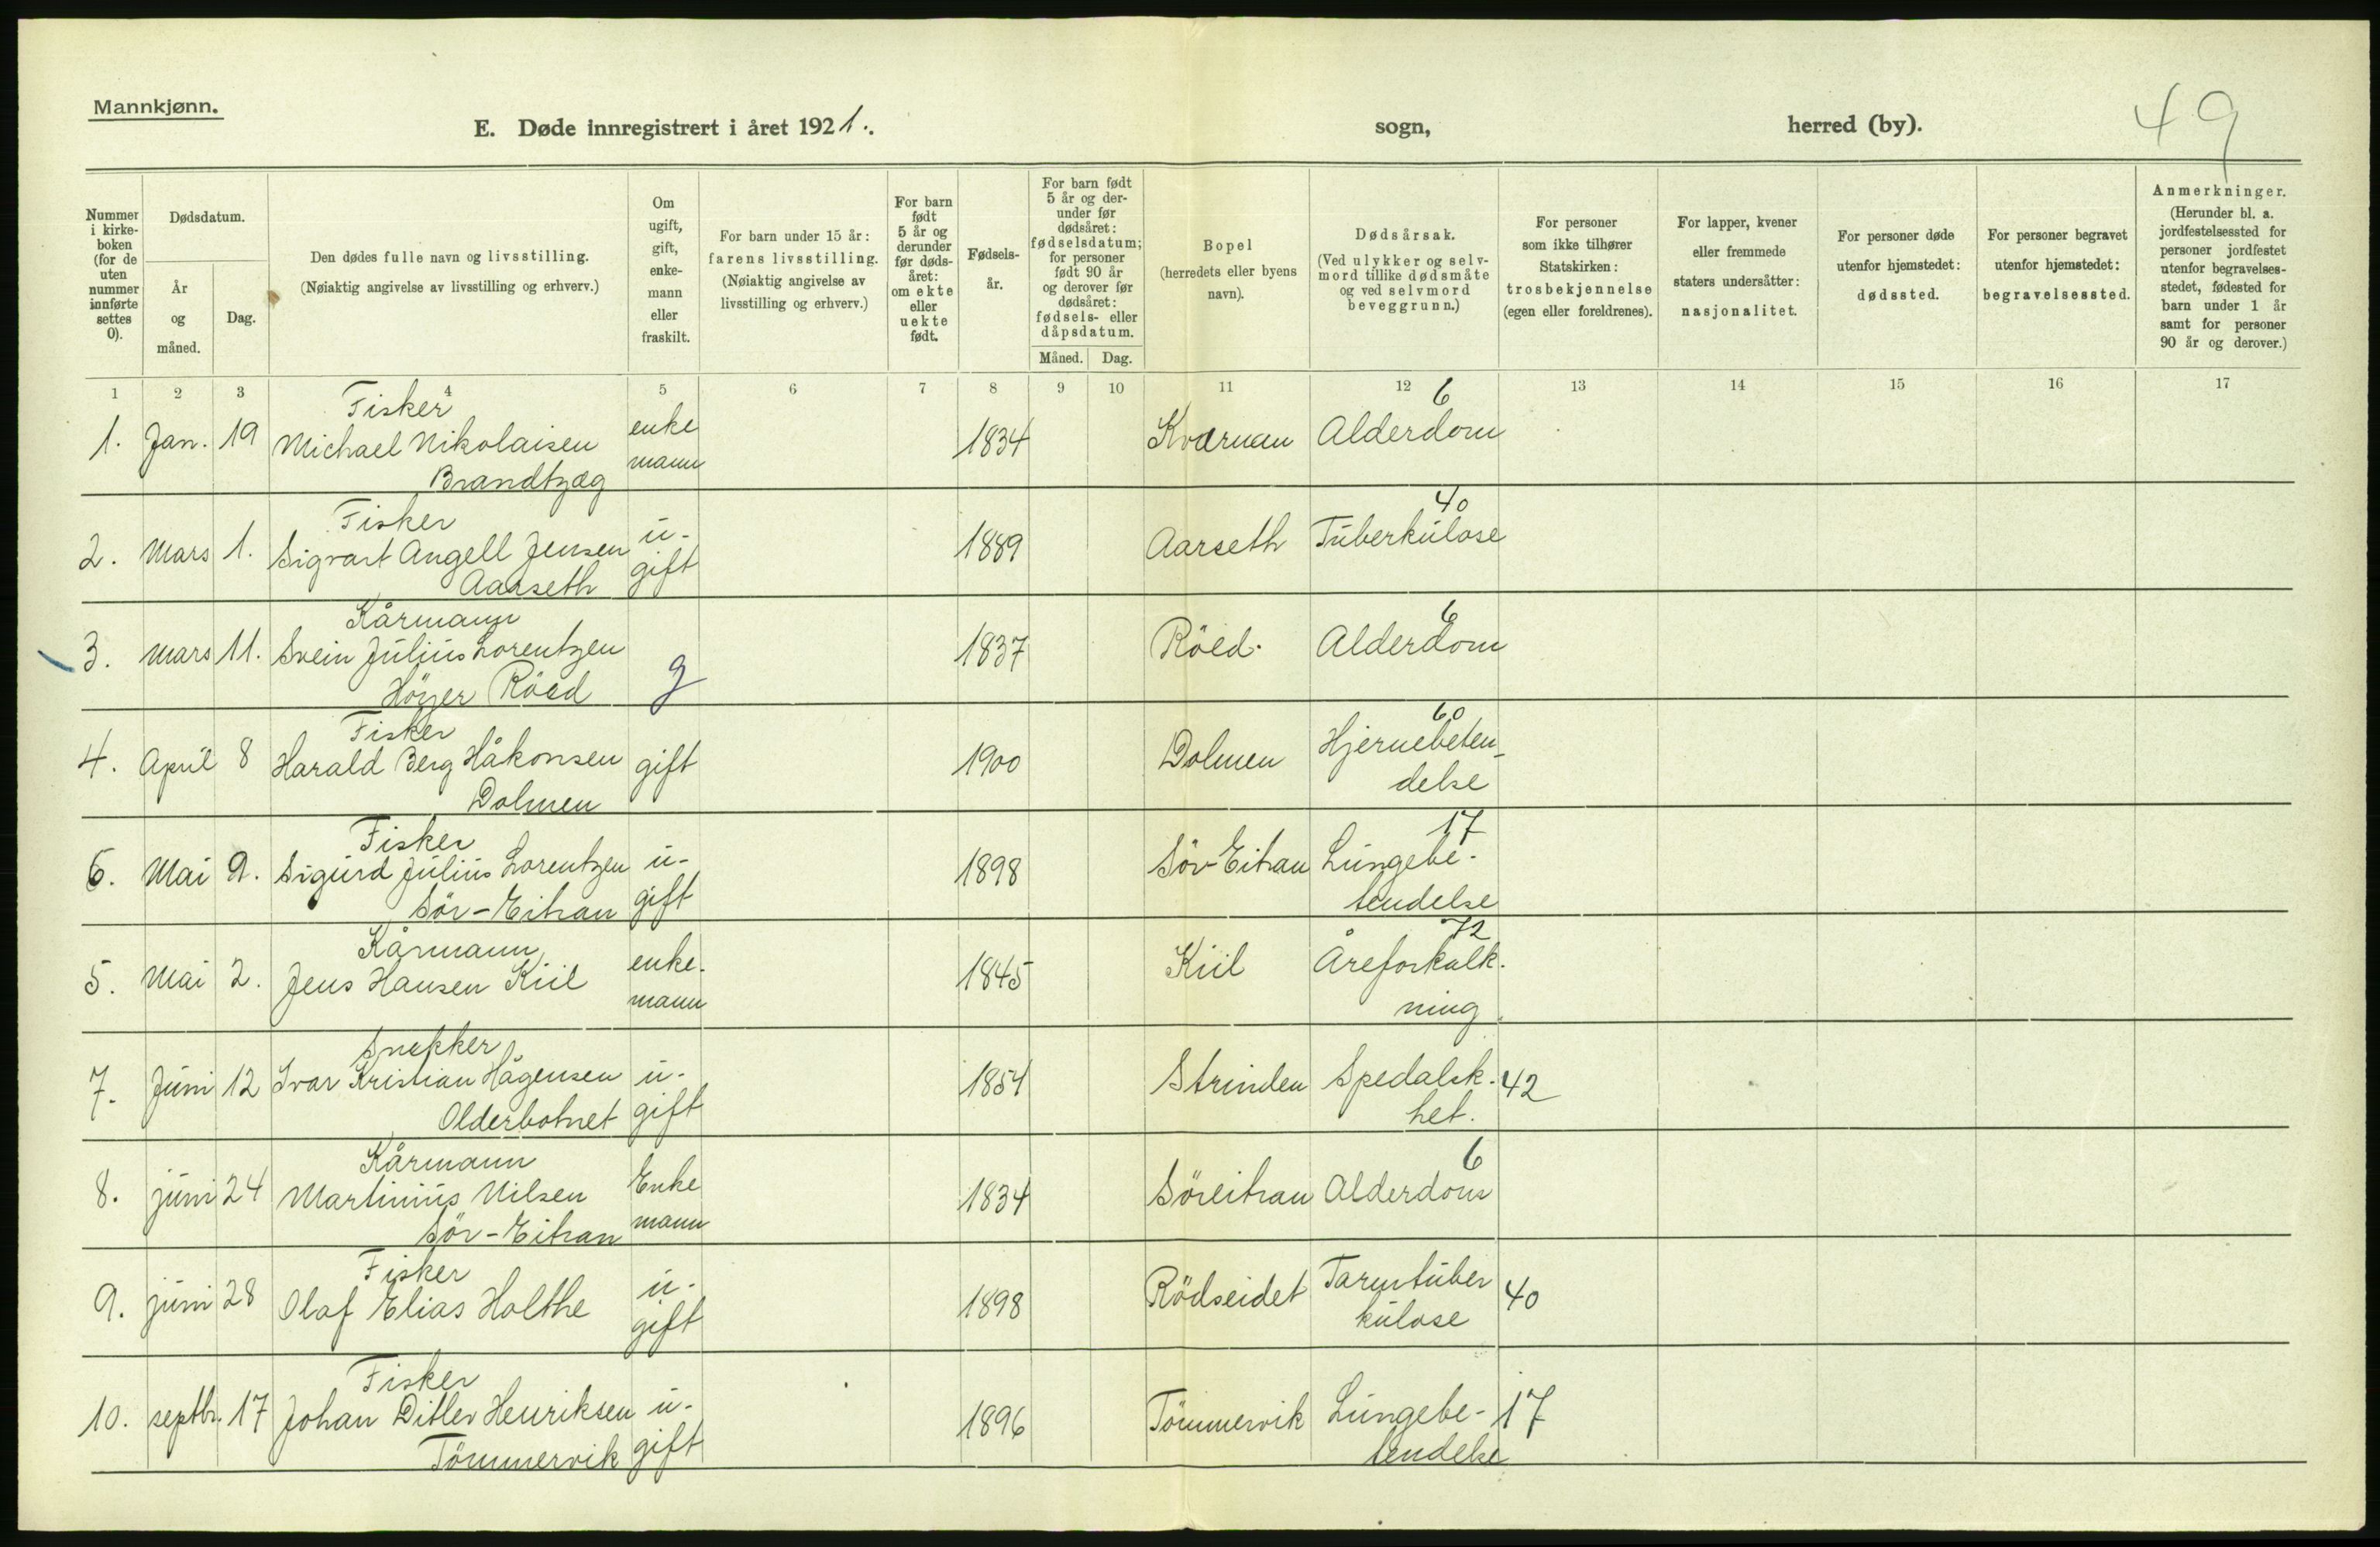 Mannkjønn.
E. Døde innregistrert i året 1921. sogn, herred (by). 49
Nummer i kirke- boken (for de uten nummer innførte settes 0).
Dødsdatum.
År og måned.
Dag.
Den dødes fulle navn og livsstilling.
(Nøiaktig angivelse av livsstilling og erhverv.)
Om ugift, gift, enke- mann eller fraskilt.
For barn under 15 år:
farens livsstilling.
(Nøiaktig angivelse av
livsstilling og erhverv.)
For barn født 5 år og derunder før døds- året: om ekte eller uekte født.
Fødsels- år.
For barn født 5 år og der- under før dødsåret: fødselsdatum; for personer født 90 år og derover før dødsåret: fødsels- eller dåpsdatum.
Måned. Dag.
Bopel
(herredets eller byens
navn).
Dødsårsak.
(Ved ulykker og selv-
mord tillike dødsmåte
og ved selvmord
beveggrunn.)
For personer
som ikke tilhører
Statskirken:
trosbekjennelse
(egen eller foreldrenes).
For lapper, kvener
eller fremmede
staters undersåtter:
nasjonalitet.
For personer døde
utenfor hjemstedet:
dødssted.
For personer begravet
utenfor hjemstedet:
begravelsessted.
Anmerkninger.
(Herunder bl. a.
jordfestelsessted for
personer jordfestet
utenfor begravelses-
stedet, fødested for
barn under 1 år
samt for personer
90 år og derover.)
1 2 3 4 5 6 7 8 9 10 11 12 13 14 15 16 17
Fisker 6
1. Jan. 19 Michael Nikolaisen enke 1834 Kværnen Alderdom
Brandtzæg mann
Fisker 40
2. Mars 1. Sigvart Angell Jensen u- 1889 Aarseth Tuberkulose
Aarseth gift
Kårmann 6
3. Mars 11. Svein Julius Lorentzen 1837 Röed. Alderdom
Höyer Röed g
Fisker 60
4. April 8 Harald Berg Håkonsen gift 1900 Dolmen Hjernebeten-
Dolmen delse
Fisker 17
6. Mai 9. Sigurd Julius Lorentzen u- 1898 Sör-Eitran Lungebe-
Sör-Eitran gift tendelse
Kårmann 72
5. Mai 2. Jens Hansen Kiil enke- 1845 Kiil Åreforkalk-
mann ning
Snekker
7. Juni 12 Ivar Kristian Hågensen u- 1854 Strinden Spedalsk- 42
Olderbotnet gift het.
Kårmann 6
8. juni 24 Martinius Nilsen Enke 1834 Söreitran Alderdom
Sör-Eitran mann
Fisker
9. juni 28 Olaf Elias Holthe u- 1898 Rödseidet Tarmtuber 40
gift kulose
Fisker
10. septbr. 17 Johan Ditlev Henriksen u- 1896 Tömmervik Lungebe- 17
Tömmervik gift tendelse